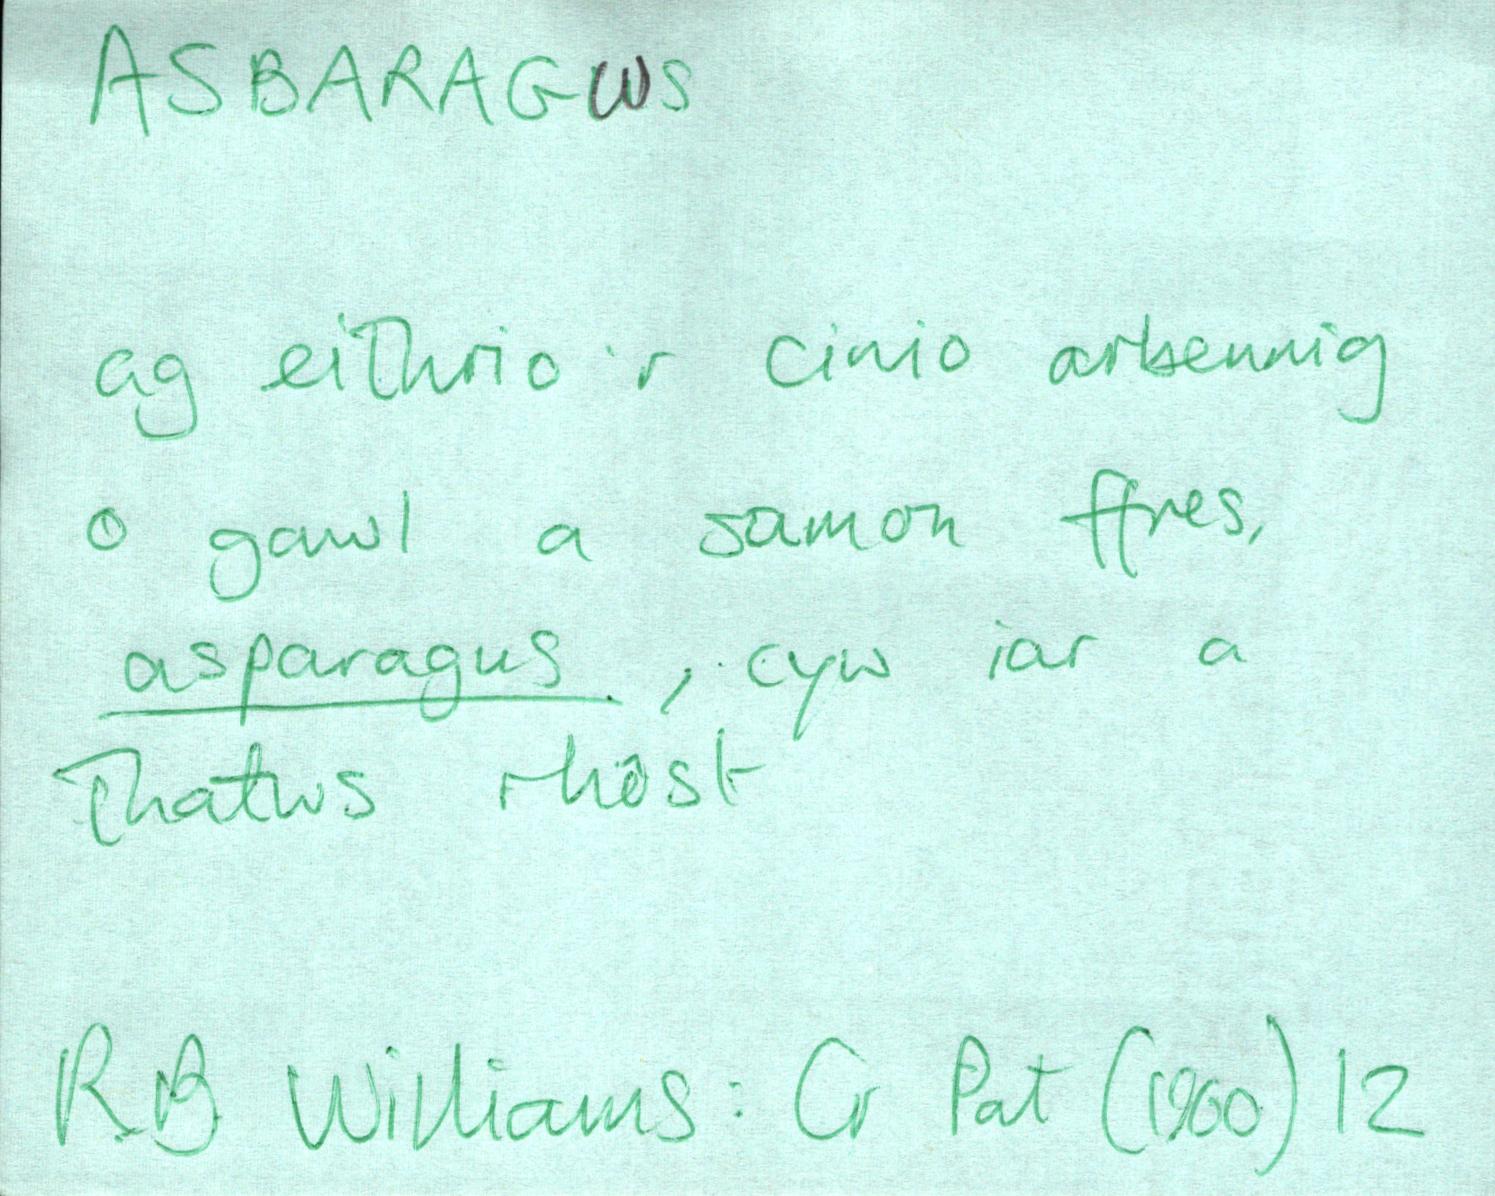 ASBARAGWS
ag eithrio'r cinio arbennig
o gawl a samon ffres,
asparagus, cyw iar a
thatws rhôst
RB Williams: Cr Pat (1960) 12